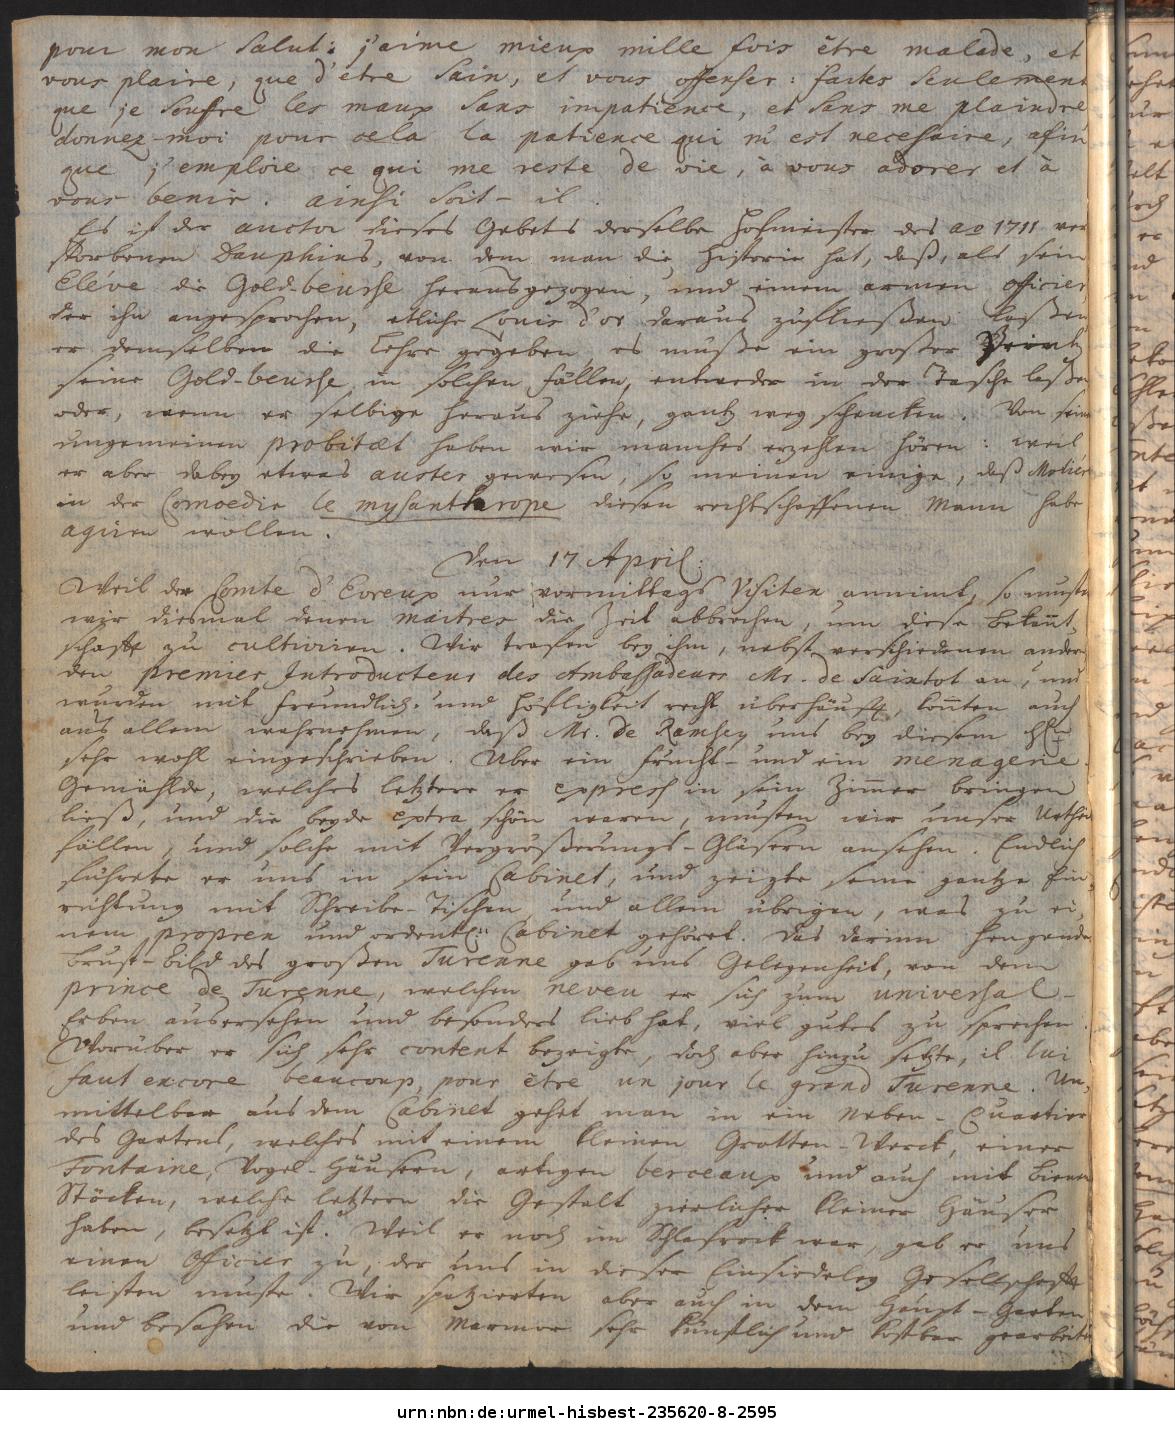 pour mon salut: j'aime mieux mille fois être malade, et
vous plaire, que d'être sain, et vous offenser: faites seulement
que je souffre les maux sans impatience, et sans me plaindre
donnez-moi pour cela la patience qui m'est necessaire, afin
que j'emploie ce qui me reste de vie, à vous adorer et à
vous benir. ainsi soit-il.
Es ist der auctor dieses Gebets derselbe Hofmeister des ao 1711 ver
storbenen Dauphins, von dem man die Historie hat, daß, als sein
Eléve die Gold-beurse herausgezogen, und einem armen officier,
der ihn angesprochen, etliche Louis d'or daraus zufließen laßen,
er demselben die Lehre gegeben, es müße ein großer Printz
seine Gold-beurse in solchen Fällen, entweder in der Tasche laßen
oder, wenn er selbige heraus ziehe, gantz weg schencken. Von seiner
ungemeinen probitæt haben wir manches erzehlen hören: weil
er aber dabey etwas auster gewesen, so meinen einige, daß Moliére
in der Comoedie le mysanthrope diesen rechtschaffenen Mann habe
agiren wollen.
Den 17 April.
Weil der Comte d'Evreux nur vormittags Visiten annimt, so musten
wir diesmal denen maitres die Zeit abbrechen, um diese bekant
schafft zu cultiviren. Wir trafen bey ihm, nebst verschiedenen andern
den premier Introducteur des Ambassadeurs Mr. de Saintot an, und
wurden mit freundlich- und Höfligkeit recht überhäufft, konten auch
aus allem wahrnehmen, daß Mr. de Ramsey uns bey diesem Hn
sehr wohl eingeschrieben. Uber ein frucht- und ein menagerie
Gemählde, welches letztere er express in sein Zimer bringen
ließ, und die beyde extra schön waren, musten wir unser Urtheil
fällen, und solche mit Vergrößerungs-Gläsern ansehen. Endlich
führete er uns in sein Cabinet, und zeigte seine gantze Ein
richtung mit Schreibe-Tischen und allem übrigen, was zu ei
nem propren und ordentl. Cabinet gehöret. Das darinn hengende
brust-bild des großen Turenne gab uns Gelegenheit, von dem
prince de Turenne, welchen neveu er sich zum universal-
Erben ausersehen und besonders lieb hat, viel gutes zu sprechen.
Worüber er sich sehr content bezeigte, doch aber hinzu setzte, il lui
faut encore beaucoup, pour être un jour le grand Turenne. Un
mittelbar aus dem Cabinet gehet man in ein Neben-Quartier
des Gartens, welches mit einem kleinen Grotten-Werck, einer
Fontaine, Vogel-Häusern, artigen berceaux und auch mit bienen
Stöcken, welche letztern die Gestalt zierlicher kleiner Häuser
haben, besetzt ist. Weil er noch im Schlafrock war, gab er uns
einen Officier zu, der uns in dieser Einsiedeley Gesellschafft
leisten muste. Wir spatzierten aber auch in dem Haupt-Garten
und besahen die von Marmor sehr künstlich und kostbar gearbeite
urn:nbn:de:urmel-hisbest-235620-8-2595